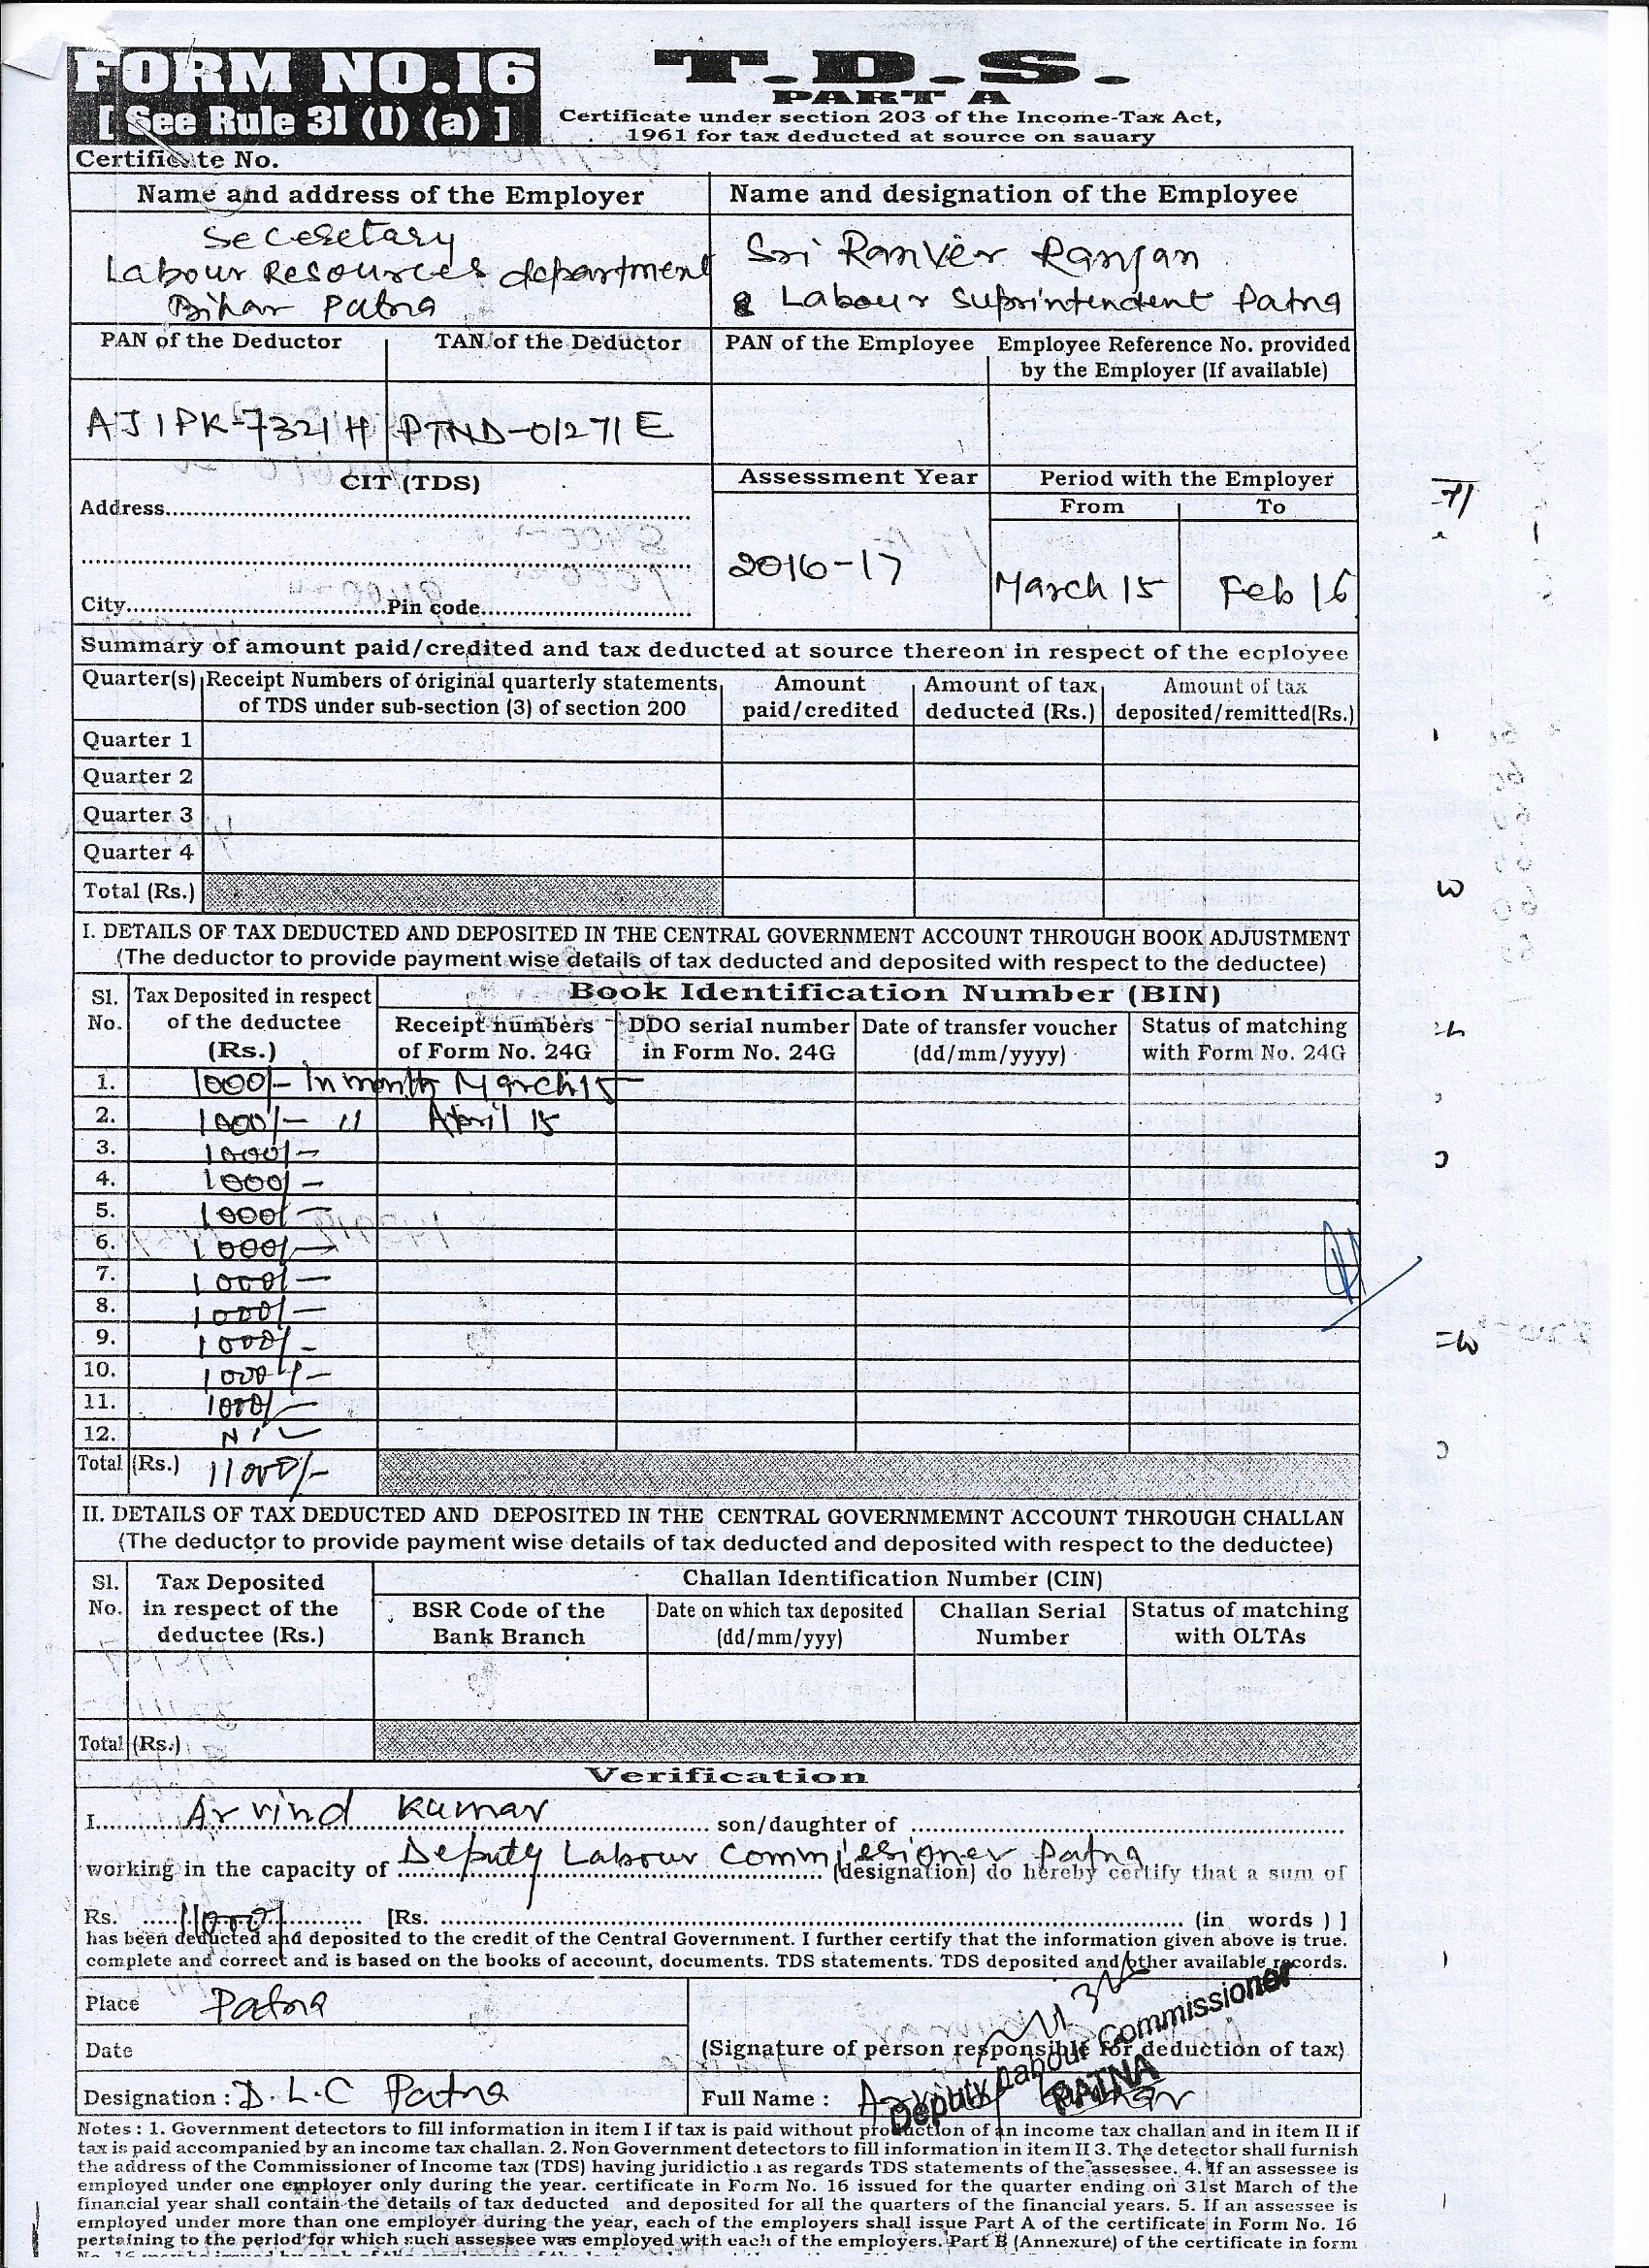 FORM NO.16
[ See Rule 31 (1) (a) ]
T.D.S.
PART A
Certificate under section 203 of the Income-Tax Act,
1961 for tax deducted at source on sauary
Certificate No.
Name and address of the Employer Name and designation of the Employee
Seceretary
Labour Resources department
Bihar Patna
Sri Ranver Ranjan
Labour Suprintendent Patna
PAN of the Deductor TAN of the Deductor PAN of the Employee Employee Reference No. provided
by the Employer (If available)
AJIPK-7321H PTND-01271E
CIT (TDS) Assessment Year Period with the Employer
Address From To
2016-17 March 15 Feb 16
City Pin code
Summary of amount paid/credited and tax deducted at source thereon in respect of the ecployee
Quarter(s) Receipt Numbers of original quarterly statements Amount Amount of tax Amount of tax
of TDS under sub-section (3) of section 200 paid/credited deducted (Rs.) deposited/remitted(Rs.)
Quarter 1
Quarter 2
Quarter 3
Quarter 4
Total (Rs.)
I. DETAILS OF TAX DEDUCTED AND DEPOSITED IN THE CENTRAL GOVERNMENT ACCOUNT THROUGH BOOK ADJUSTMENT
(The deductor to provide payment wise details of tax deducted and deposited with respect to the deductee)
Sl. Tax Deposited in respect Book Identification Number (BIN)
No. of the deductee Receipt numbers DDO serial number Date of transfer voucher Status of matching
(Rs.) of Form No. 24G in Form No. 24G (dd/mm/yyyy) with Form No. 24G
1. 1000/- in month March 15
2. 1000/- 11 April 15
3. 1000/-
4. 1000/-
5. 1000/-
6. 1000/-
7. 1000/-
8. 1000/-
9. 1000/-
10. 1000/-
11. 1000/-
12. Nil
Total (Rs.) 11000/-
II. DETAILS OF TAX DEDUCTED AND DEPOSITED IN THE CENTRAL GOVERNMEMNT ACCOUNT THROUGH CHALLAN
(The deductor to provide payment wise details of tax deducted and deposited with respect to the deductee)
Sl. Tax Deposited Challan Identification Number (CIN)
No. in respect of the BSR Code of the Date on which tax deposited Challan Serial Status of matching
deductee (Rs.) Bank Branch (dd/mm/yyy) Number with OLTAs
Total (Rs.)
Verification
I Arvind Kumar son/daughter of
working in the capacity of Deputy Labour Commissioner Patna (designation) do hereby certify that a sum of
Rs. 11000/ [Rs. (in words ) ]
has been deducted and deposited to the credit of the Central Government. I further certify that the information given above is true.
complete and correct and is based on the books of account, documents. TDS statements. TDS deposited and other available records.
Place Patna
Date
(Signature of person responsible for deduction of tax)
Deputy Labour Commissioner
PATNA
Designation : D.L.C Patna Full Name : Arvind Kumar
Notes : 1. Government detectors to fill information in item I if tax is paid without production of an income tax challan and in item II if
tax is paid accompanied by an income tax challan. 2. Non Government detectors to fill information in item II 3. The detector shall furnish
the address of the Commissioner of Income tax (TDS) having juridiction as regards TDS statements of the assessee. 4. If an assessee is
employed under one employer only during the year. certificate in Form No. 16 issued for the quarter ending on 31st March of the
financial year shall contain the details of tax deducted and deposited for all the quarters of the financial years. 5. If an assessee is
employed under more than one employer during the year, each of the employers shall issue Part A of the certificate in Form No. 16
pertaining to the period for which such assessee was employed with each of the employers. Part B (Annexure) of the certificate in form